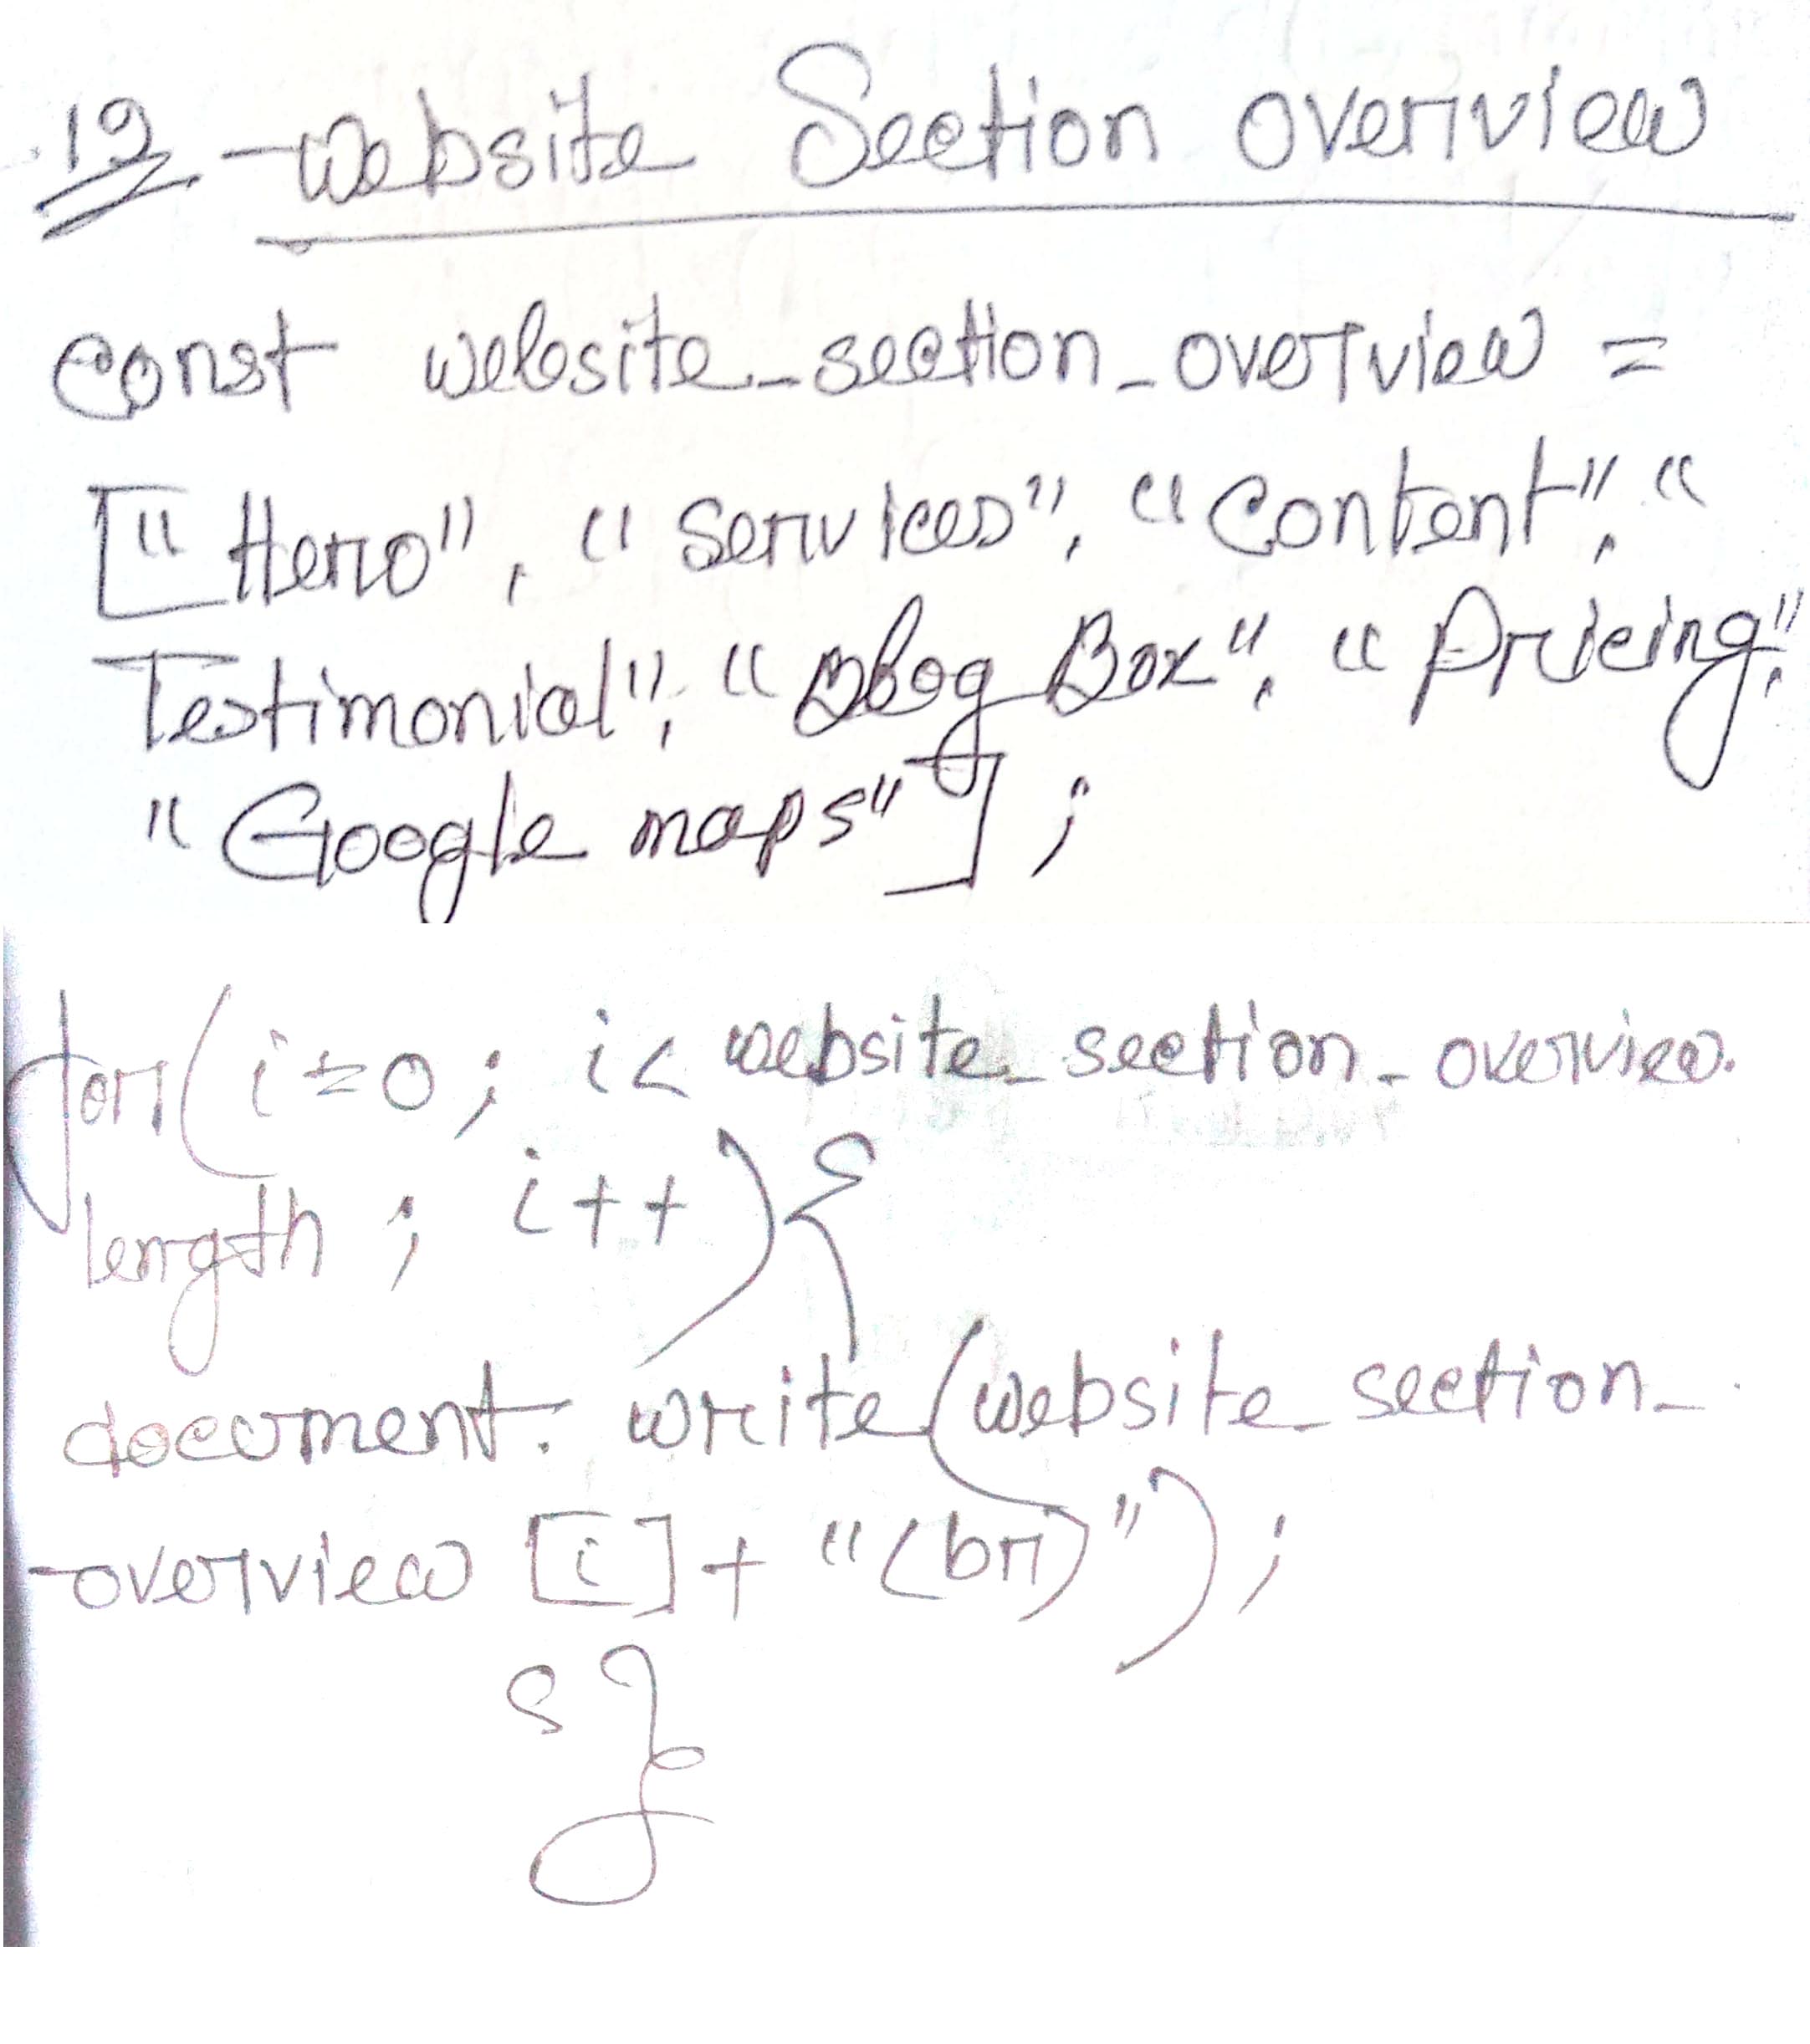 12 - Website Section overview
const website_section_overview =
["Hero", "Services", "Content", "
Testimonial", "Blog Box", "Pricing",
"Google maps"];
for(i=0; i< website_section_overview.
length; i++){
document. write(website_section_
overview [i]+ "<br>");
}